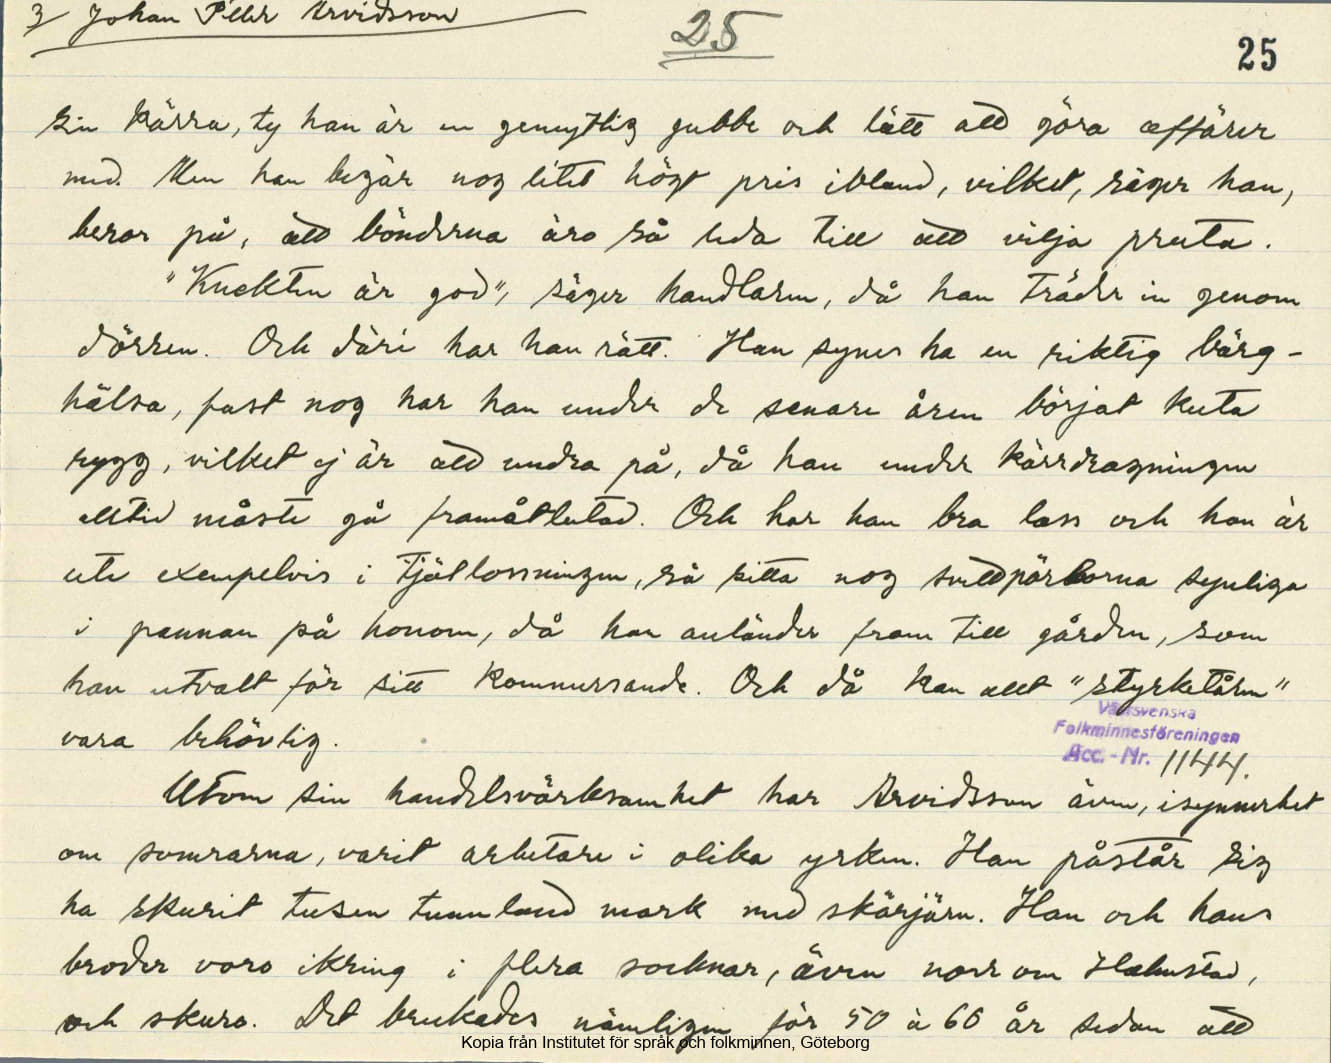 3 Johan Peter Arvidsson
25
25
sin kärra, ty han är en gemytlig gubbe och lätt att göra affärer
med. Men han begär nog litet högt pris ibland, vilket, säger han,
beror på, att bönderna äro så leda till att vilja pruta.
"Knekten är god", säger handlarn, då han träder in genom
dörren. Och däri har han rätt. Han synes ha en riktig bärg-
hälsa, fast nog har han under de senare åren börjat kuta
rygg, vilket ej är att undra på, då han under kärrdragningen
alltid måste gå framåtlutad. Och har han bra lass och han är
ute exempelvis i tjällossningen, så sitta nog svettpärlorna synliga
i pannan på honom, då han anländer fram till gården, som
han utvalt för sitt kommersande. Och då kan allt "styrketårn"
vara behövlig.
Västsvenska
Folkminnesföreningen
Acc.-Nr. 1144.
Utom sin handelsvärksamhet har Arvidsson även, isynnerhet
om somrarna, varit arbetare i olika yrken. Han påstår sig
ha skurit tusen tunnland mark med skärjärn. Han och hans
broder voro ikring i flera socknar, även norr om Halmstad,
och skuro. Det brukades nämligen för 50 à 60 år sedan att
Kopia från Institutet för språk och folkminnen, Göteborg